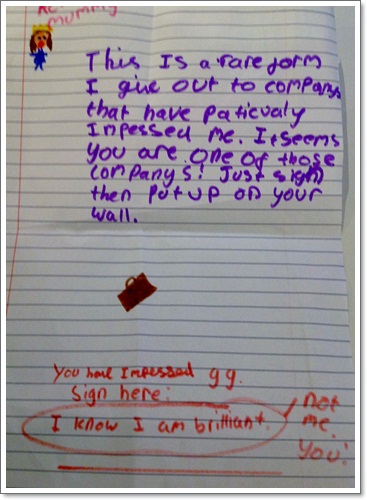 mummy
This Is a rare form
I give out to companys
that have paticualy
Impessed me. It seems
you are one of those
companys! Just sign
then put up on your
wall.
You have Impessed gg.
Sign here:
I know I am brilliant.
not
me.
you!